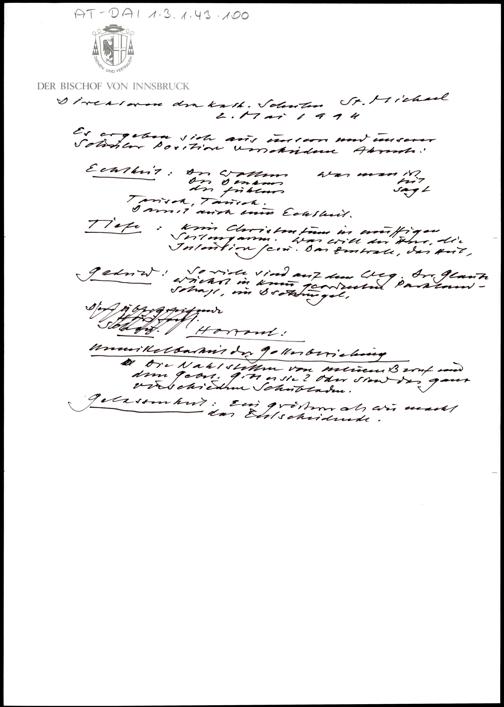 AT-DAI 1.3.1.43.100
DER BISCHOF VON INNSBRUCK
Direktoren der kath. Schulen St. Michael
2. Mai 1994
Es ergeben sich aus unserer und unserer
Schüler Position verschiedene
Echtheit: Des Wollens was man ist
des Denkens
des Fühlens sagt
Tausch, Tausch.
Damit auch zum Echtheit.
Tiefe: Kein Christentum in
Was will der Herr, die
Intention sein. Das Zentrale, das Heil,
Geduld: So viele sind auf dem Weg. Der Glaube
wächst in keiner geordneten Parkland-
schaft, im Dschungel,
Horront:
Unmittelbarkeit der Gottesbeziehung
Die Nahtstellen von meinem Beruf und
dem Gebet. Gibt es sie? Oder sind das ganz
verschiedene Schubladen.
Gelassenheit: Ein größerer als wir macht
das Entscheidende.